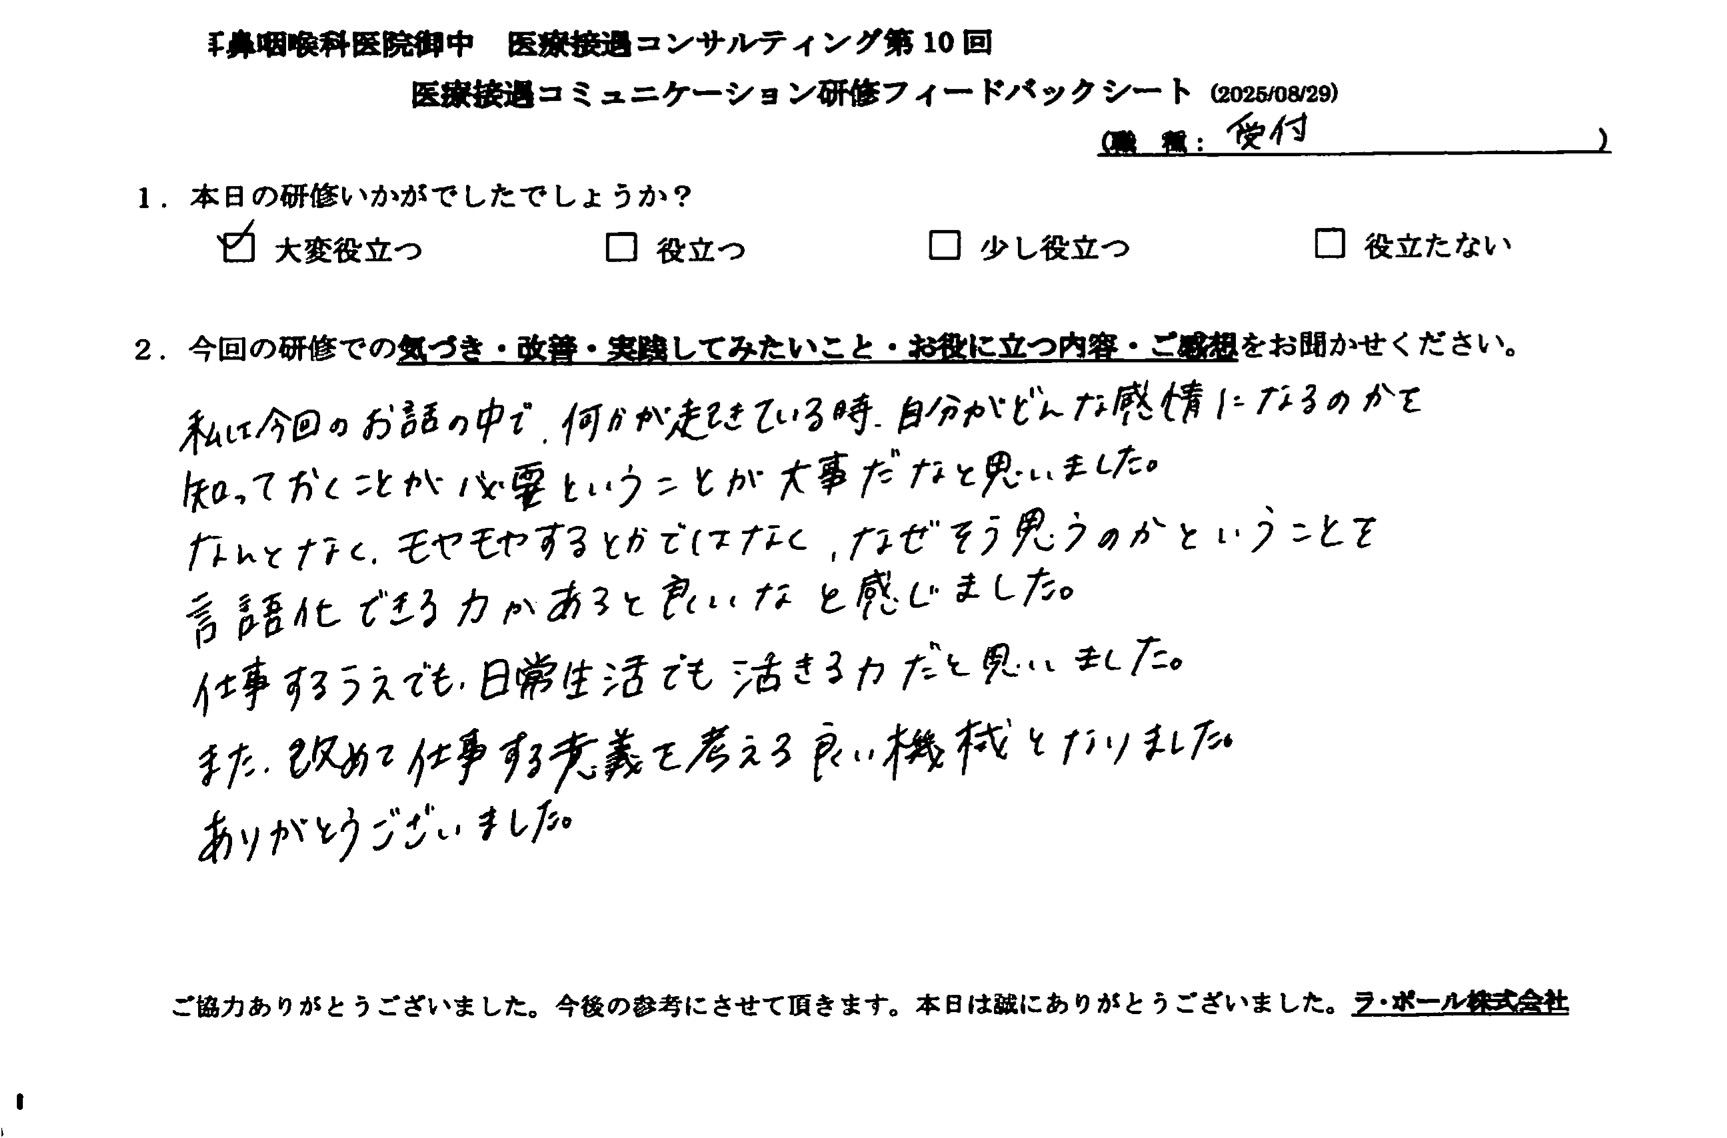 耳鼻咽喉科医院御中 医療接遇コンサルティング第10回
医療接遇コミュニケーション研修フィードバックシート (2025/08/29)
(職 種: 受付 )
1. 本日の研修いかがでしたでしょうか?
☑ 大変役立つ □ 役立つ □ 少し役立つ □ 役立たない
2. 今回の研修での気づき・改善・実践してみたいこと・お役に立つ内容・ご感想をお聞かせください。
私は今回のお話の中で、何かが起きている時、自分がどんな感情になるのかを
知っておくことが必要ということが大事だなと思いました。
なんとなく、モヤモヤするとかではなく、なぜそう思うのかということを
言語化できる力があると良いなと感じました。
仕事するうえでも、日常生活でも活きる力だと思いました。
また、改めて仕事する意義を考える良い機械となりました。
ありがとうございました。
ご協力ありがとうございました。今後の参考にさせて頂きます。本日は誠にありがとうございました。ラ・ポール株式会社